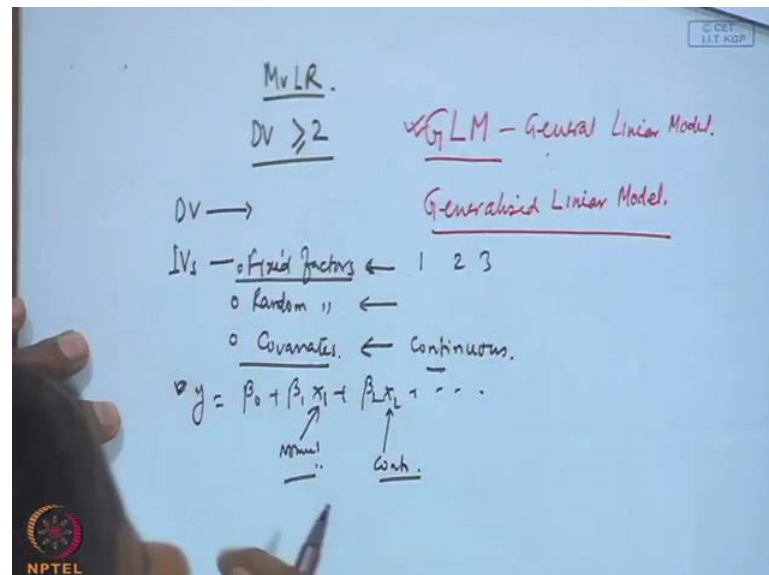 © CET
I.I.T. KGP
MvLR.
DV ⩾2
GLM – General Linier Model.
Generalised Linier Model.
DV →
IVs – o Fixed factors ← 1 2 3
o Random " ←
o Covariates. ← Continuous.
y = β₀ + β₁ x₁ + β₂ x₂ + - - -
Cont.
NPTEL